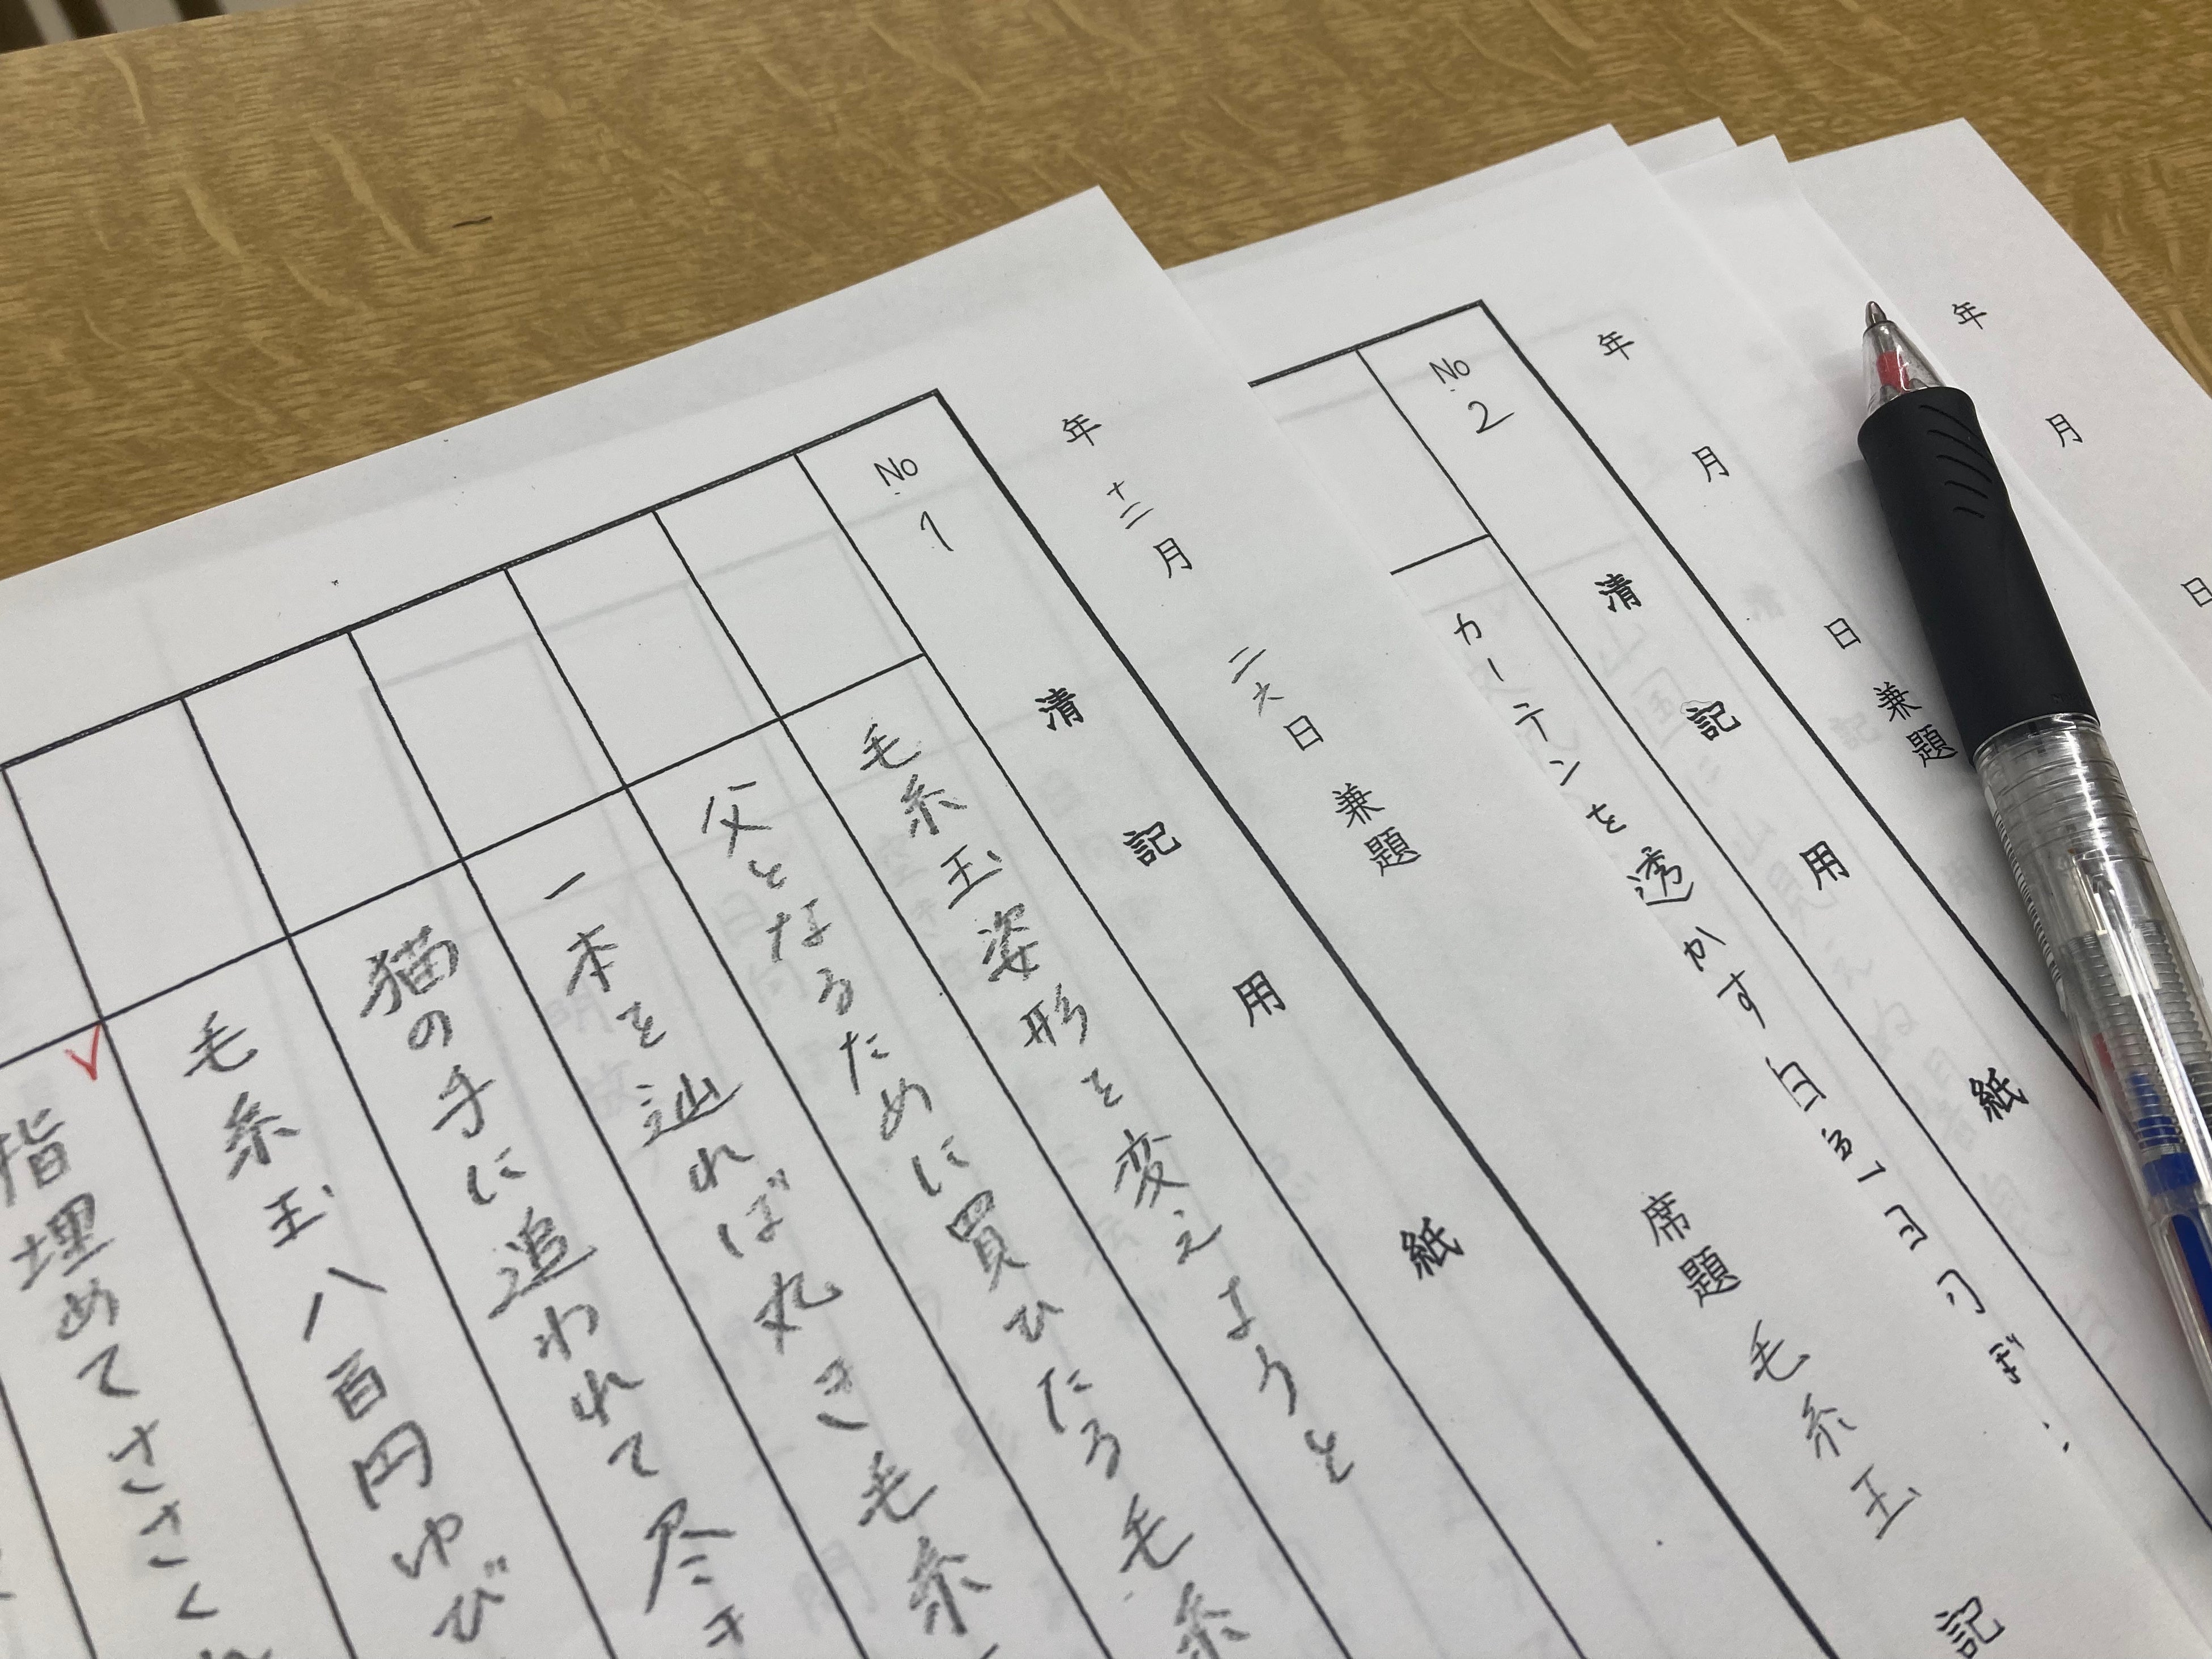 年十二月二六日兼題
席題毛糸玉
清記用紙
No 1
毛糸玉姿形を変えようと
父となるために買ひたる毛糸
一本を辿れば丸き毛糸
猫の手に追われて尽き
毛糸玉八百円ゆび
指埋めてささくれ
年月日兼題
清記用紙
No 2
カーテンを透かす
年月日
記